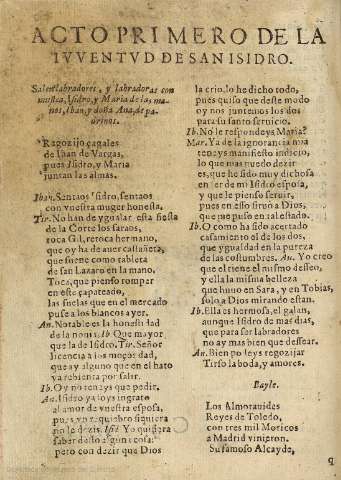 ACTO PRIMERO DE LA
IVVENTVD DE SAN ISIDRO.
Salen labradores, y labradoras con
musica, Isidro, y Maria de las ma-
nos, Iban, y doña Ana, de pa-
drinos.
Regozijo çagales
de Iban de Vargas,
pues Isidro, y Maria
juntan las almas.
Iban. Sentaos Isidro, sentaos
con vuestra muger honesta.
Tir. No han de ygualar esta fiesta
de la Corte los saraos,
toca Gil, retoca hermano,
que oy ha de auer castañeta,
que suene como tableta
de san Lazaro en la mano.
Toca, que pienso romper
en este çapateado,
las suelas que en el mercado
puse a los blancos ayer.
An. Notable es la honestidad
de la nouia. Ib. Que mayor
que la de Isidro. Tir. Señor
licencia a los moços dad,
que ay alguno que en el hato
ya rebienta por salir.
Ib. Oy no teneys que pedir.
An. Isidro ya soys ingrato
al amor de vuestra esposa,
pues vn requiebro siquiera
no le dezis. Isid. Yo quisiera
saber desto alguna cosa:
pero con dezir que Dios
la crio, lo he dicho todo,
pues quiso que deste modo
oy nos juntemos los dos
para su santo seruicio.
Ib. No le respondeys Maria?
Mar. Ya de la ignorancia mia
teneys manifiesto indicio,
lo que mas puedo dezir
es, que he sido muy dichosa
en ser de mi Isidro esposa,
y que le pienso seruir,
pues en ello siruo a Dios,
que me puso en tal estado.
Ib. O como ha sido acertado
casamiento el de los dos,
que ygualdad en la pureza
de las costumbres. An. Yo creo
que el tiene el mismo desseo,
y ella la misma belleza
que huuo en Sara, y en Tobias,
solo a Dios mirando estan.
Ib. Ella es hermosa, el galan,
aunque Isidro de mas dias,
que para ser labradores
no ay mas bien que dessear.
An. Bien podeys regozijar
Tirso la boda, y amores.
Bayle.
Los Almorauides
Reyes de Toledo,
con tres mil Moricos
a Madrid vinieron.
Su famoso Alcayde,
q